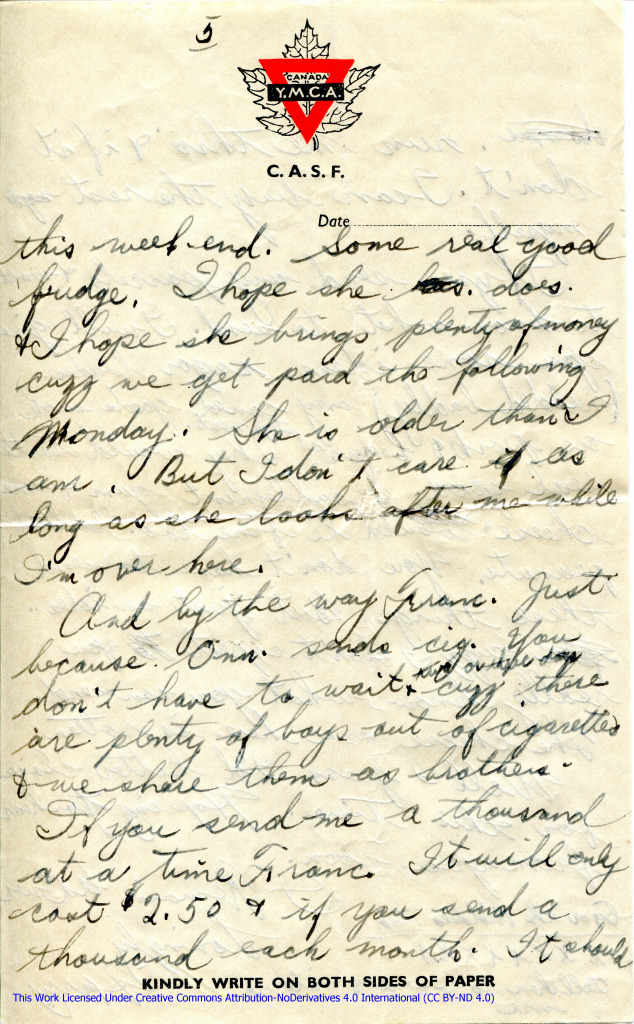 5
CANADA
Y.M.C.A.
C. A. S. F.
Date
this week-end. Some real good
fudge. I hope she has. does.
& I hope she brings plenty of money
cuzz we get paid the following
Monday. She is older than I
am. But I don't care if as
long as she looks after me while
I'm over here.
And by the way Franc. Just
because Onn. sends cig. You
don't have to wait & cuzz there
are plenty of boys out of cigarettes
& we share them as brothers.
If you send me a thousand
at a time Franc. It will only
cost $2.50 & if you send a
thousand each month. It should
KINDLY WRITE ON BOTH SIDES OF PAPER
This Work Licensed Under Creative Commons Attribution-NoDerivatives 4.0 International (CC BY-ND 4.0)